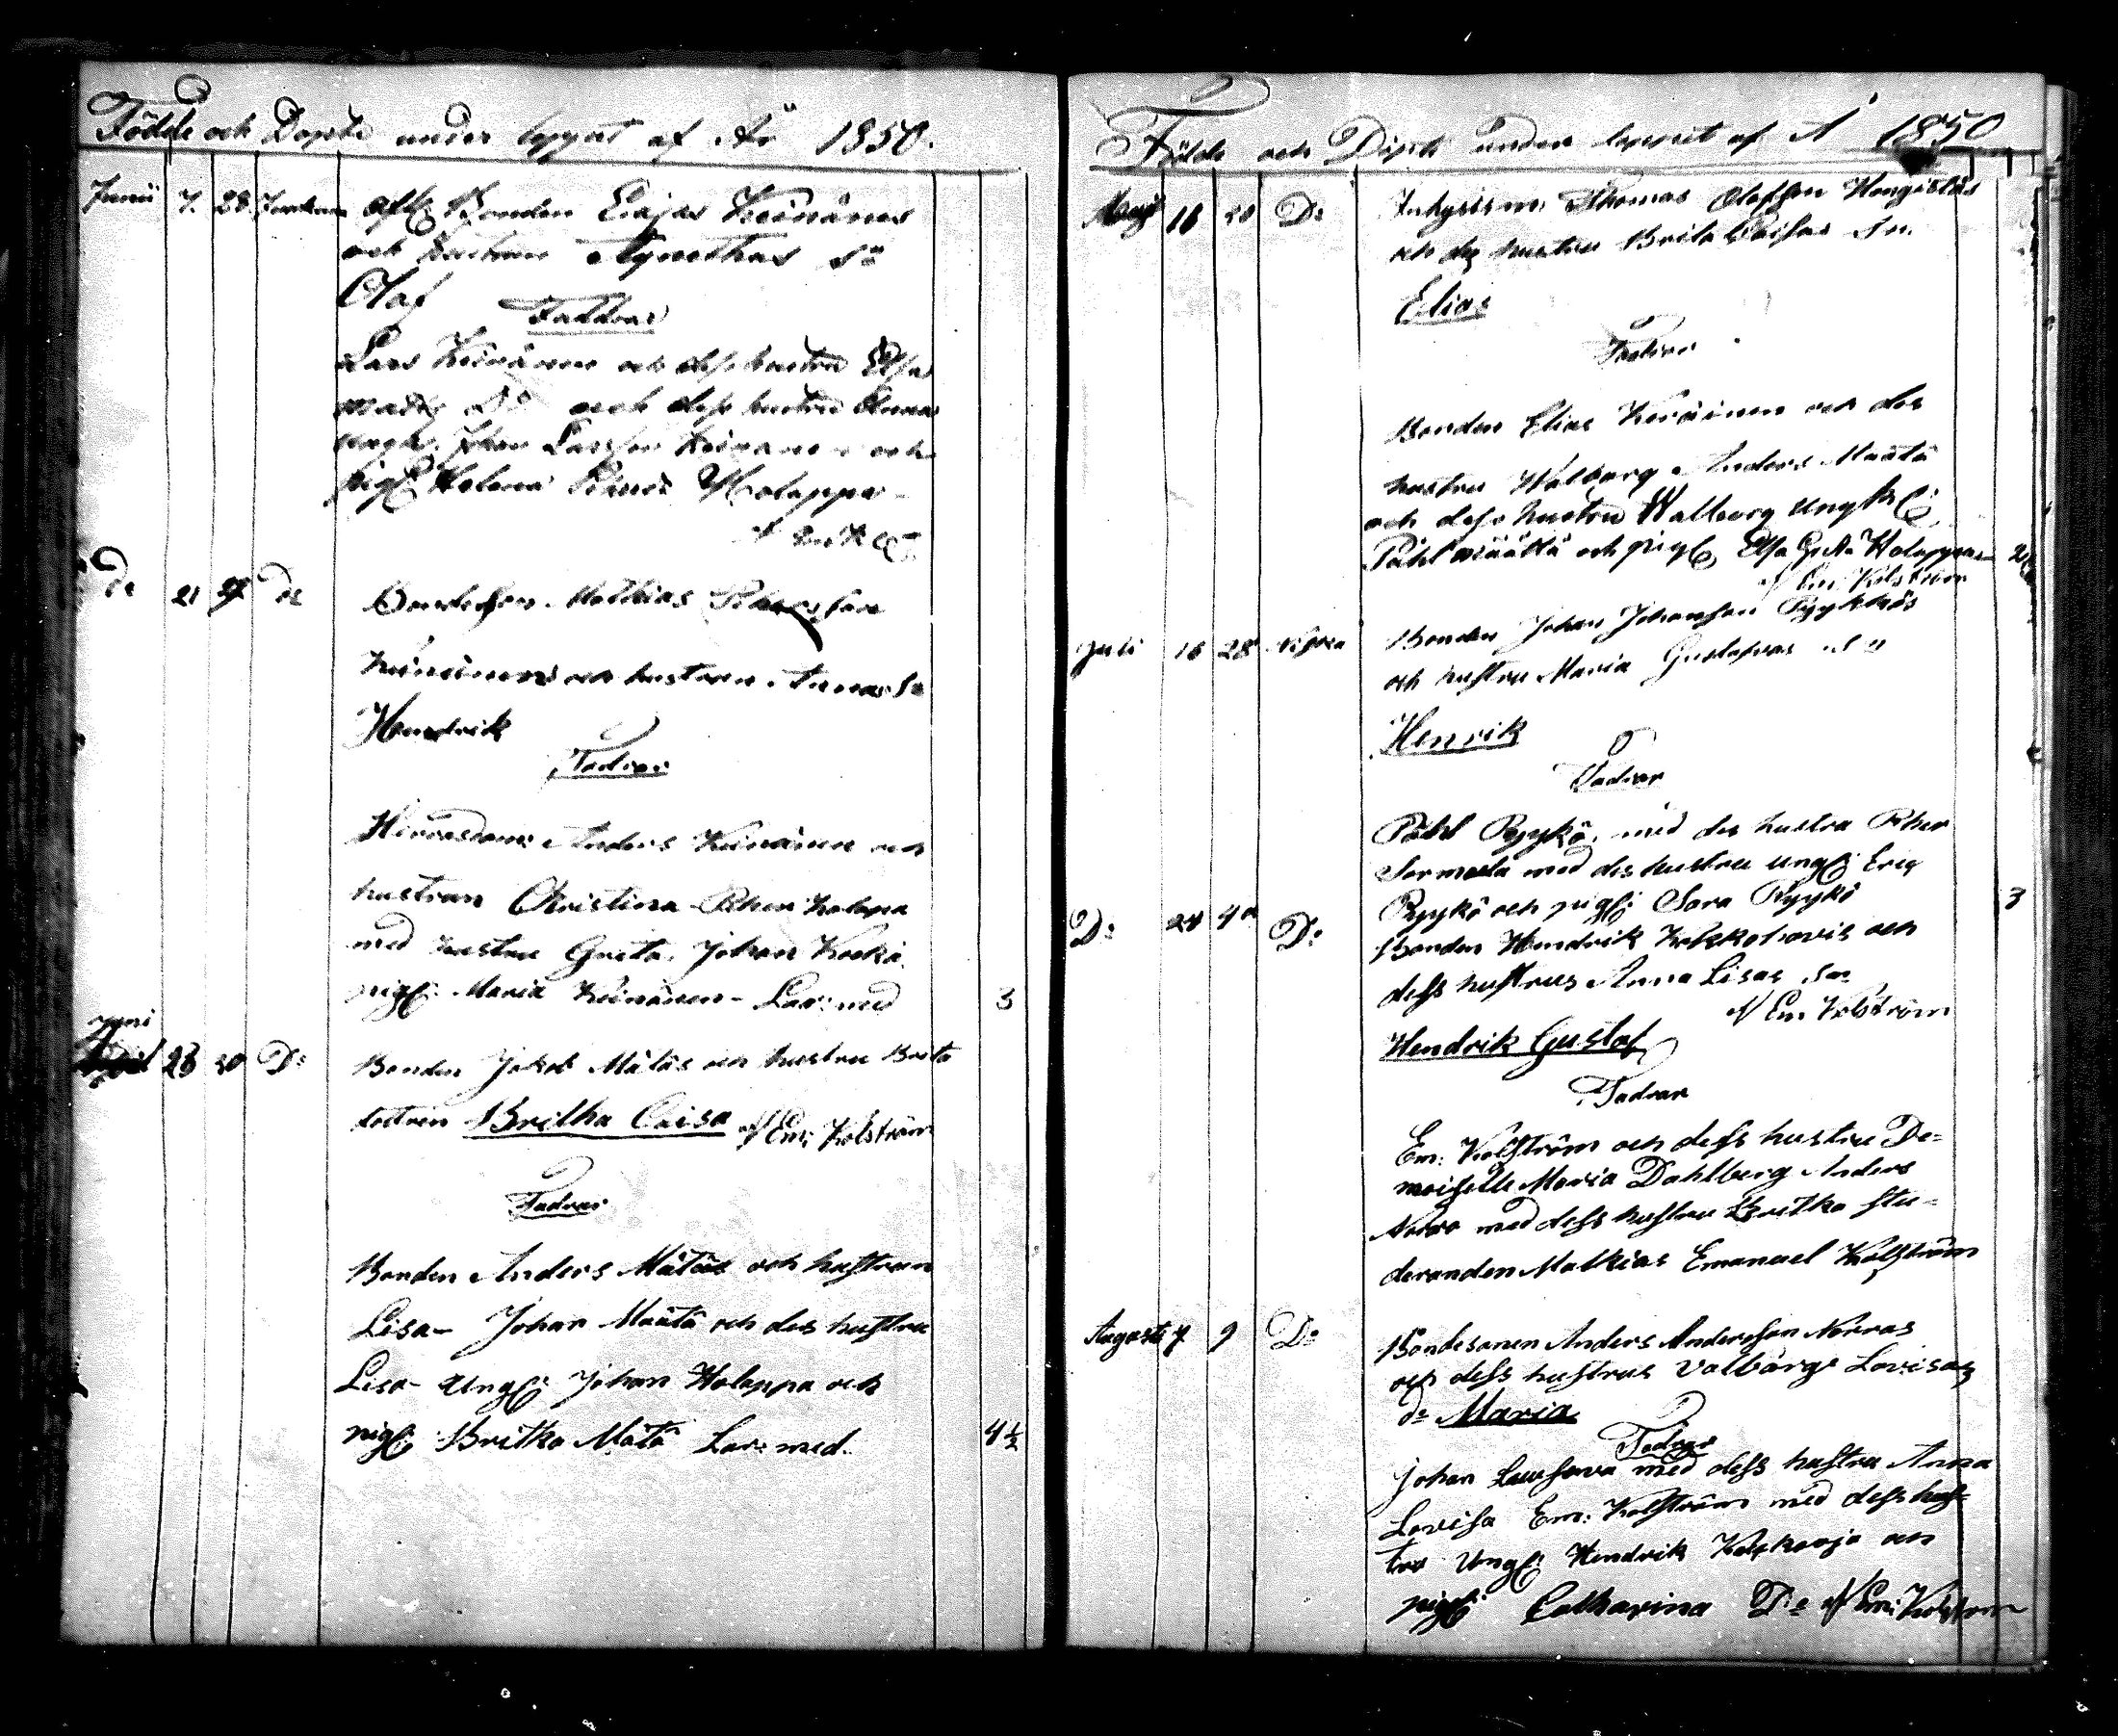 Födde och Döpte under loppet af År 1850.
Junii 7. 28. Bonden Eliias Keinänens
och hustrun Agnethas Sn
Olof
Faddrar
Lars Keinänen och dess hustru Elsa
och dess hustru Anna
Johan Larsson Keinänen och
pig: Helena Holappa
Do 21 Do Bondeson Mathias Pehrsson
Keinänens och hustrun Annas Sn
Hendrik
Fadrar
Anders Keinänen och
hustrun Christina Pher Holapa
med hustru Greta, Johan
pig: Maria Keinänen - Lar: med 3
juni 23 30 Do Bonden Jakob Mätäs och hustru Brita
dottren Britha Caisa af Em: Kolström
Fadrar
Bonden Anders Mätäs och hustrun
Lisa - Johan Määtä och des hustru
Lisa - Ungk: Johan Holappa och
pig: Britha Mätä Lar: med. 4½
Födde och Döpte under loppet af Å 1850
Maji 16 20 Do Inhysism: Thomas Olofsson Hongistos
och des hustru Brita Caisas Sn.
Elias
Fadrar
Bonden Elias Keräinen och des
hustru Walborg Anders Määtä
och dess hustru Walborg ungk:
Påhl Määttä och pig: Elsa Greta Holappa
af Em: Kolström
Juli 16 28 Bonden Johan Johansson Pyykkös
och hustru Maria Gustafvas Sn
Henrik
Fadrar
Påhl Pyykö, med des hustru Pher
Sormola med des hustru ungk: Eric
Pyykö och pig: Sara Pyykö 3
Do 24 Do Bonden Hendrik och
dess hustrus Anna Lisas Sn
af Em Kolström
Hendrik Gustaf
Fadrar
Em: Kolström och dess hustru De=
moiselle Maria Dahlberg Anders
Norra med dess hustru Britha Stu=
deranden Mathias Emanuel Kolström
Augusti 7 9 Do Bondesonen Anders Andersson Norras
och dess hustrus Valborg Lovisas
dr Maria
Fadrar
Johan med dess hustru Anna
Lovisa Em: Kolström med dess hus=
tru Ungk: Hendrik och
pig: Catharina Do af Em: Kolström